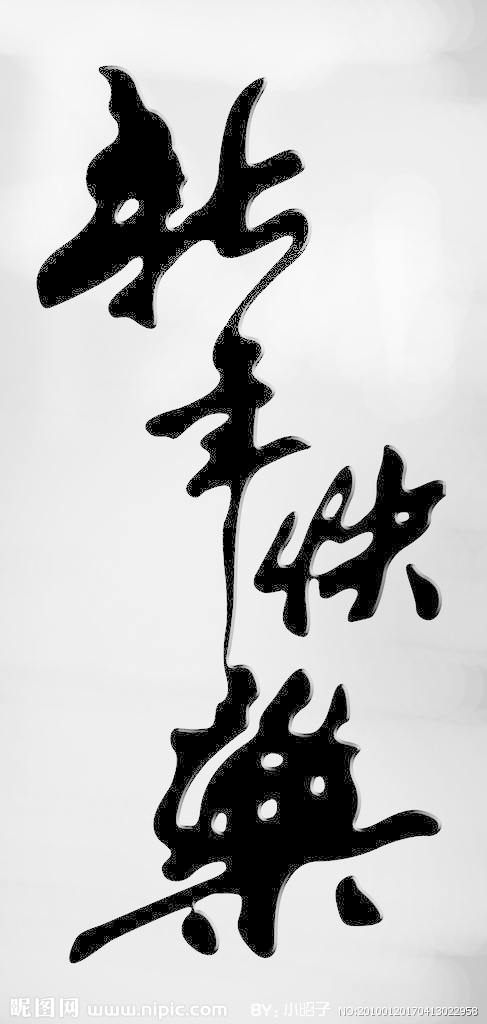 新年快樂
昵图网 www.nipic.com BY:小昭子 NO:20100120170413022958